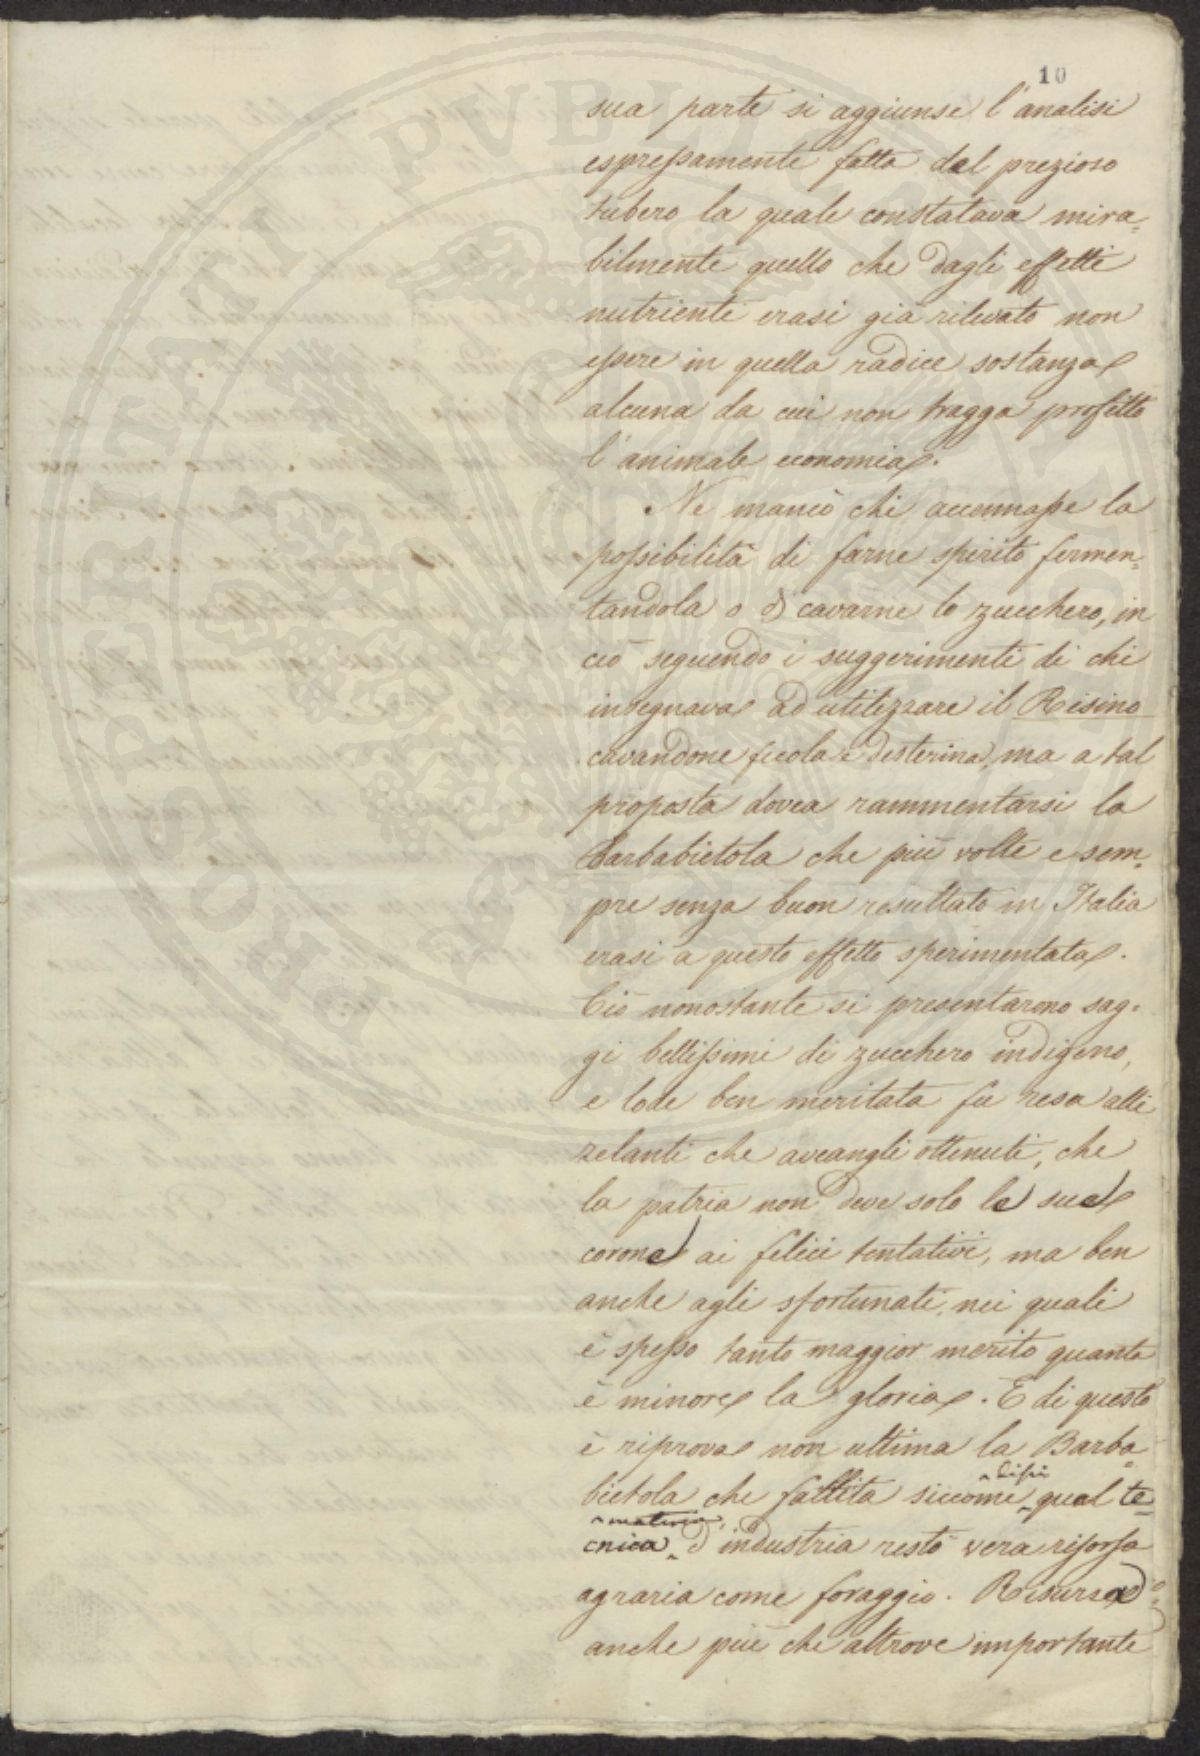 10
sua parte si aggiunse l'analisi
espressamente fatta del prezioso
tubero la quale constatava mira=
bilmente quello che dagli effetti
nutrienti erasi già rilevato non
essere in quella radice sostanza
alcuna da cui non tragga profitto
l'animale economia.
Ne mancò chi accennasse la
possibilità di farne spirito fermen=
tandola o di cavarne lo zucchero, in
ciò seguendo i suggerimenti di chi
insegnava ad utilizzare il Risino
cavandone fecola e desterina, ma a tal
proposta dovea rammentarsi la
barbabietola che più volte e sem=
pre senza buon resultato in Italia
erasi a questo effetto sperimentata.
Ciò nonostante si presentarono sag=
gi bellissimi di zucchero indigeno,
e lode ben meritata fu resa alli
zelanti che aveangli ottenuti, che
la patria non deve solo le sue
corone ai felici tentativi, ma ben
anche agli sfortunati, nei quali
è spesso tanto maggior merito quanto
è minore la gloria. E di questo
è riprova non ultima la Barba=
bietola che fallita siccome qual te=
materia
cnica d'industria restò vera risorsa
agraria come foraggio. Risorsa
anche più che altrove importante
PROSPERITATI PVBLICAE